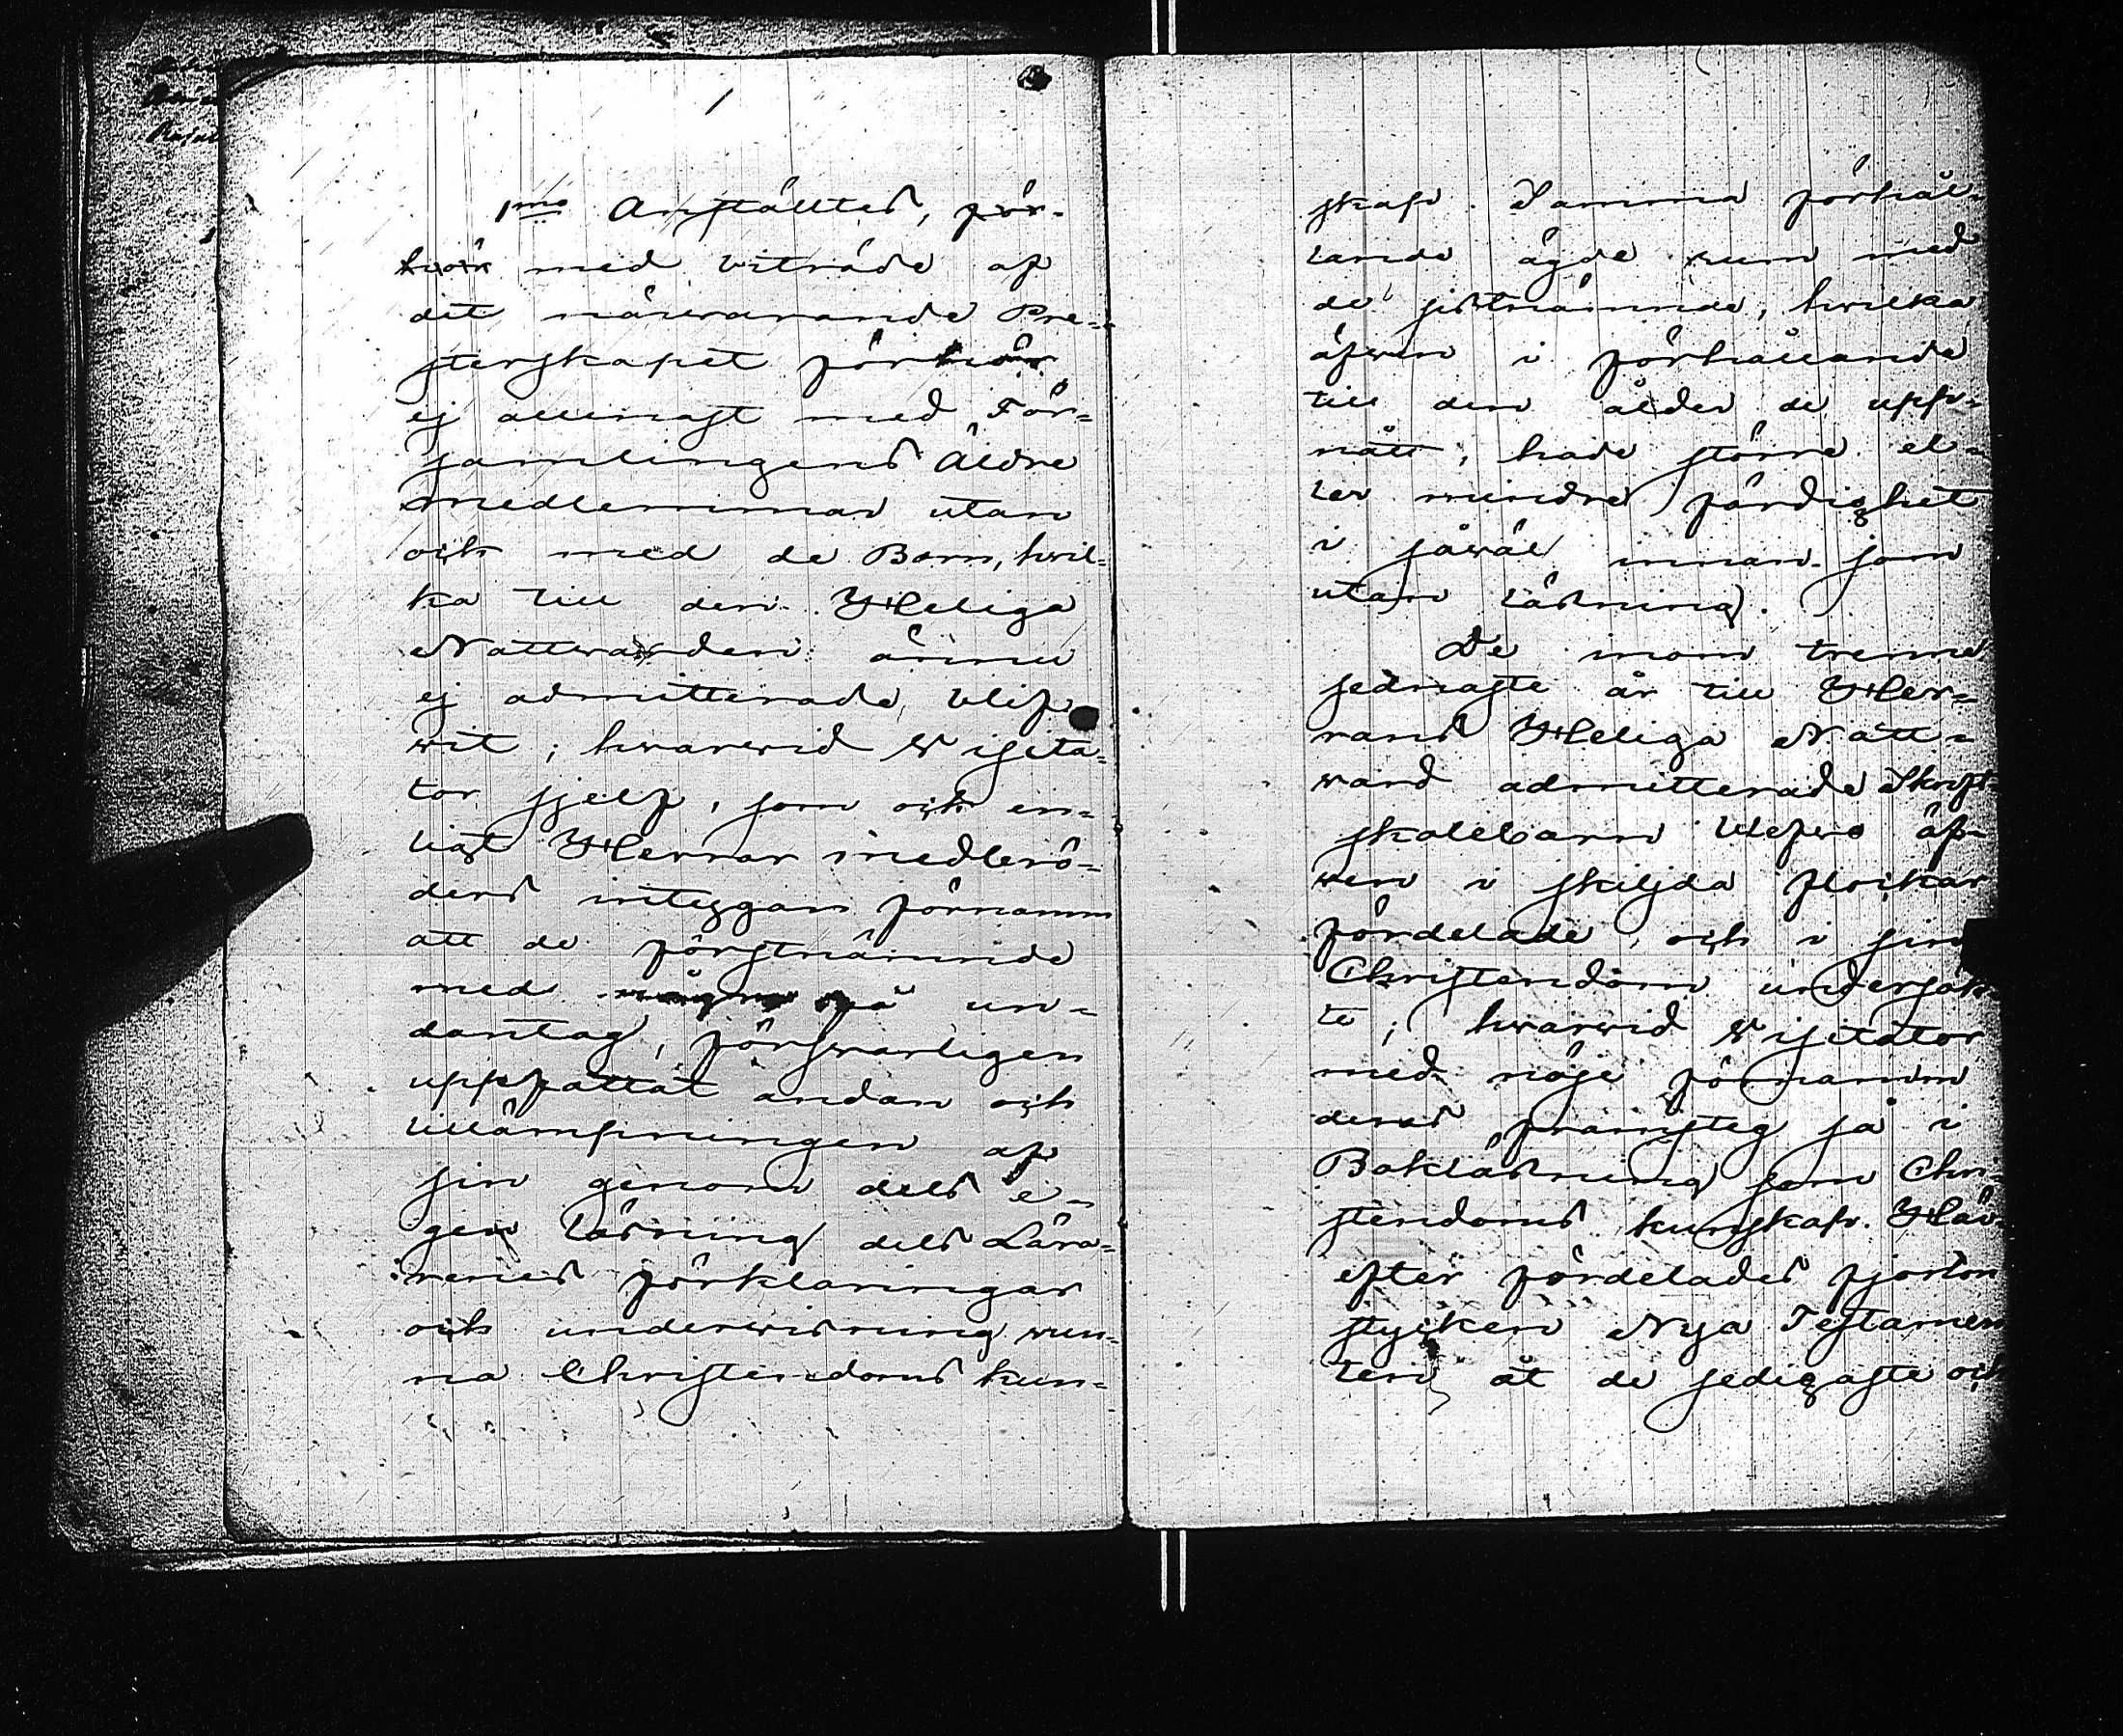 1mo Anställtes, för-
hör med biträde af
det närvarande Pre-
sterskapet förhör
ej allenast med För-
samlingens Äldre
medlemmar utan
och med de Barn, hvil-
ka till den Heliga
Nattvarden ännu
ej admitterade blif
vit; hvarvid Visita-
tor sjelf, som och en-
ligt Herrar medbrö-
ders intyggan förnamm
att de förstnämnde
med några få un-
dantag, försvarligen
uppfattat andan och
tillämpningen af
sin genom dels e-
gen läsning dels Lära-
renes förklaringar
och undervisning vun-
na Christendoms kun-
skap. Samma förhål-
lande ägde rum med
de sistnämnde, hvilka
äfven i förhållande
till den ålder de upp-
nått, hade större el-
ler mindre färdighet
i såväl innan som
utan läsning.
De inom trenne
sednaste år till Her-
rans Heliga Natt-
vard admitterade Skrift-
skolebarn blefvo äf-
ven i skiljda flockar
fördelade, och i sin
Christendom undersök-
te; hvarvid Visitator
med nöje förnamm
deras framsteg så i
Bokläsning som Chri-
stendoms kunskap. Här-
efter fördelades fjorton
stycken Nya Testamen
ten åt de sedigaste och